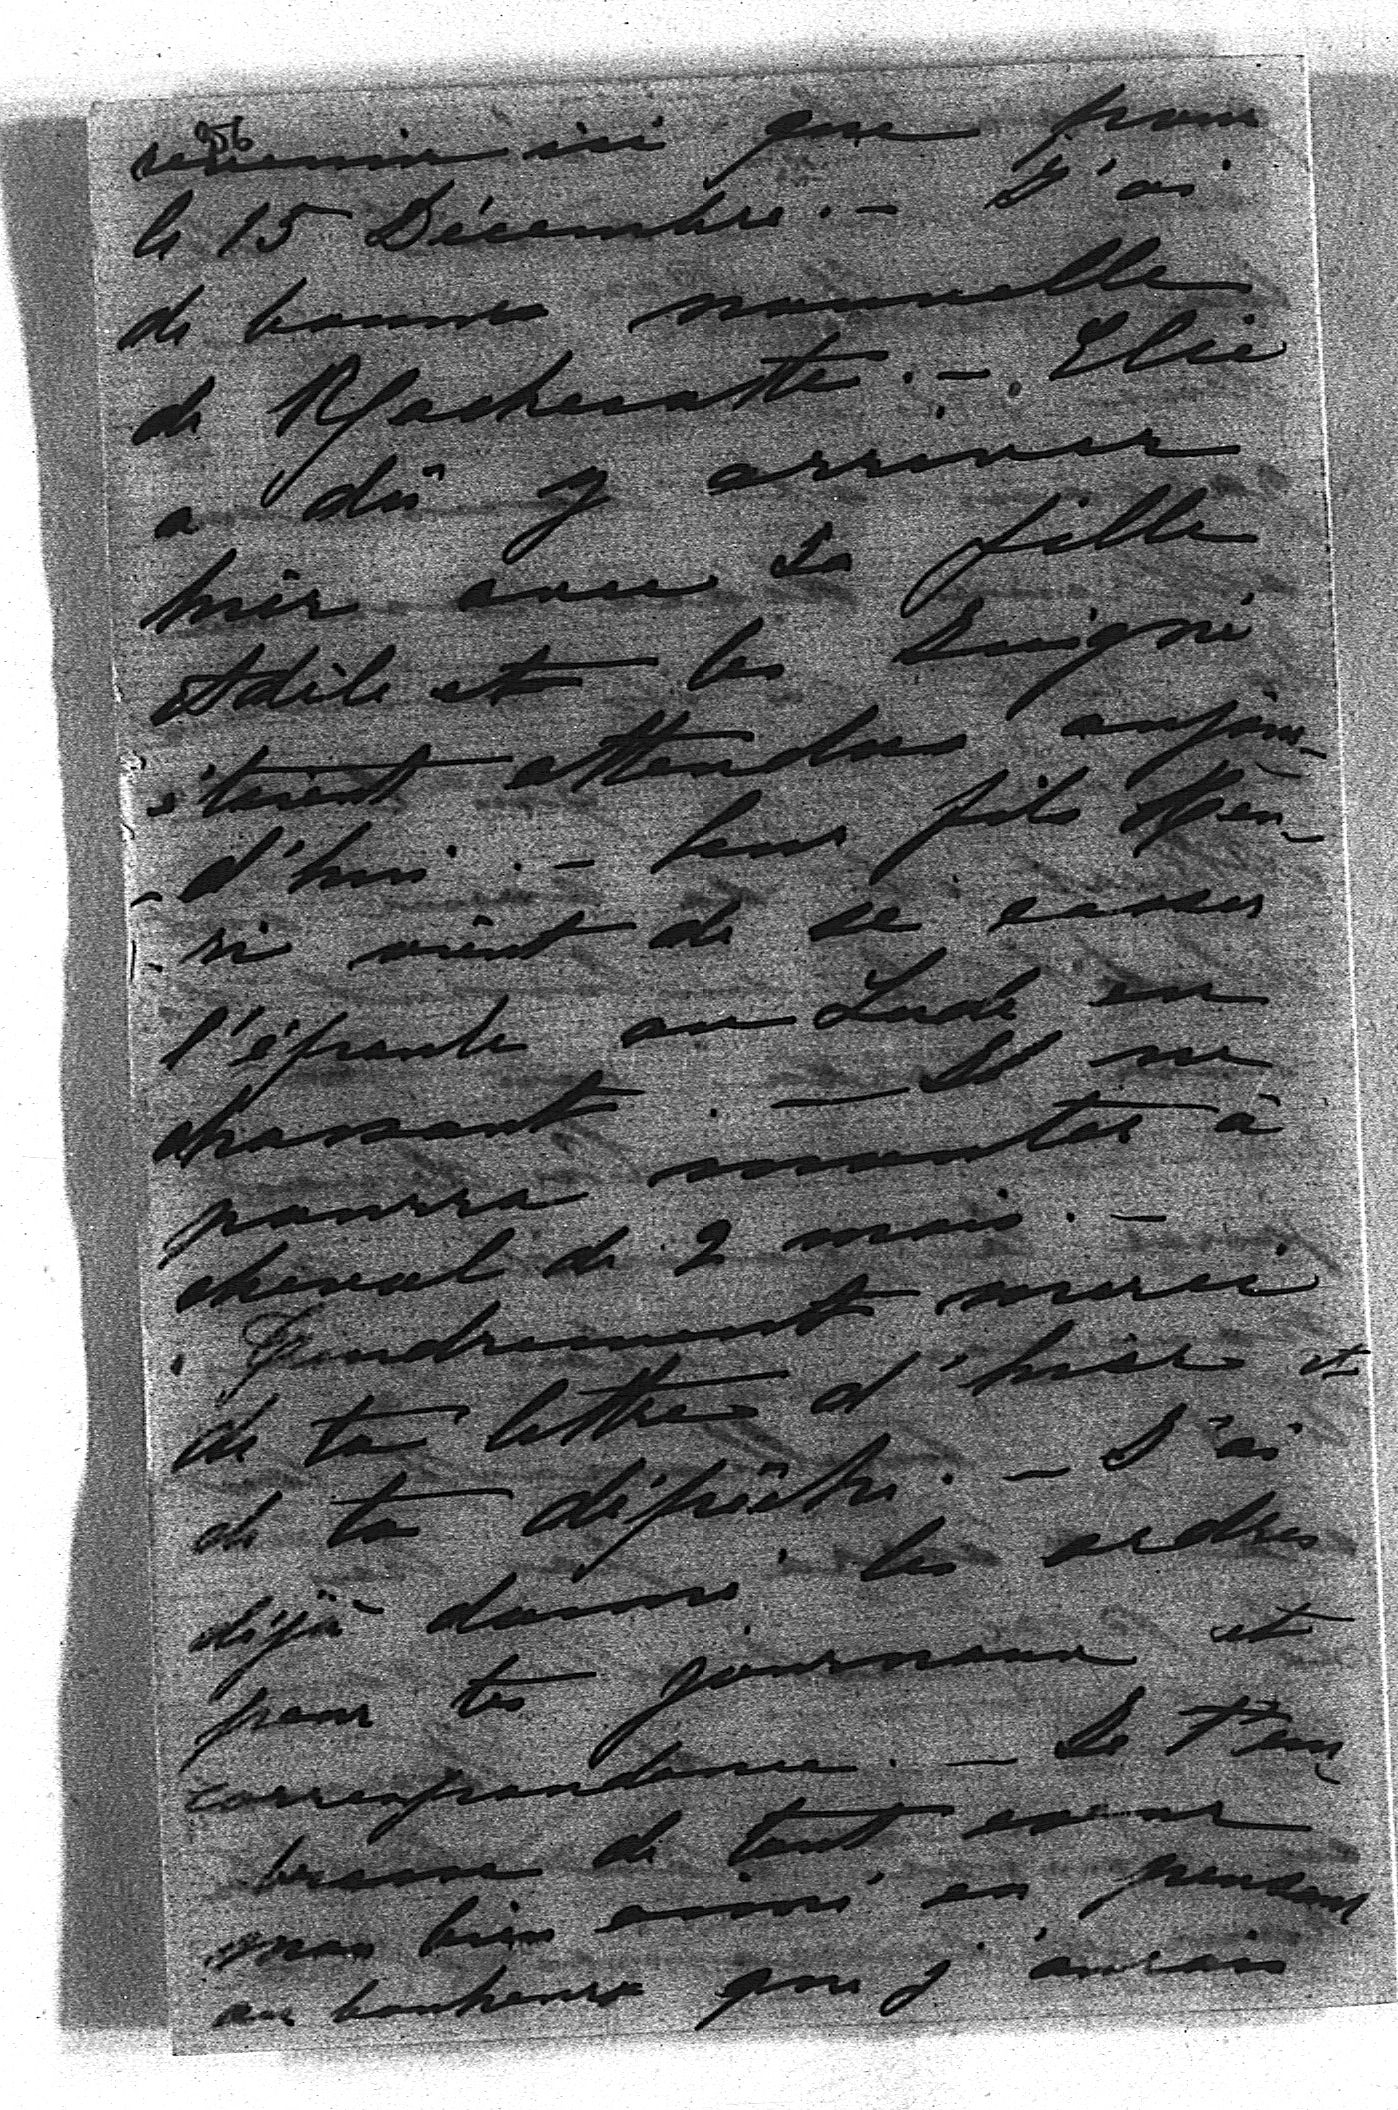 956
revenir ici que pour
le 15 Décembre. — J'ai
de bonnes nouvelle
de . — Elie
a dû y arriver
hier avec sa fille
Adèle et les
étaient attendus aujour-
-d'hui. — leur fils Hen-
-ri vient de se casser
l'épaule au Lude en
chassant. — Il ne
pourra monter à
cheval de 2 mois. —
Tendrement merci
de ta lettre d'hier et
de ta dépêche. — J'ai
déjà donné les ordres
pour tes journaux et
correspondance. — Je t'em-
brasse de tout coeur
mon bien aimé en pensant
au bonheur que j'aurais